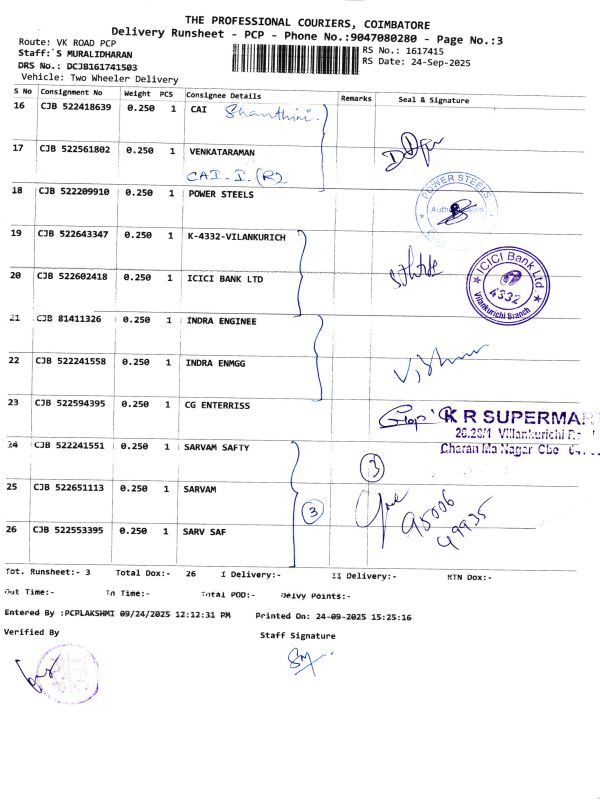 THE PROFESSIONAL COURIERS, COIMBATORE
Delivery Runsheet - PCP - Phone No.:9047080280 - Page No.:3
Route: VK ROAD PCP
Staff: S MURALIDHARAN
DRS No.: DCJB161741503
Vehicle: Two Wheeler Delivery
RS No.: 1617415
RS Date: 24-Sep-2025
S No Consignment No Weight PCS Consignee Details Remarks Seal & Signature
16 CJB 522418639 0.250 1 CAI Shanthini.
17 CJB 522561802 0.250 1 VENKATARAMAN
CAI. I. (R)
18 CJB 522209910 0.250 1 POWER STEELS
POWER STEELS
19 CJB 522643347 0.250 1 K-4332-VILANKURICH
20 CJB 522602418 0.250 1 ICICI BANK LTD
ICICI Bank Ltd
4332
Vilankurichi Branch
21 CJB 81411326 0.250 1 INDRA ENGINEE
22 CJB 522241558 0.250 1 INDRA ENMGG
23 CJB 522594395 0.250 1 CG ENTERRISS
K R SUPERMAR
26,28/1 Villankurichi
Charan Ma Nagar Cbe
24 CJB 522241551 0.250 1 SARVAM SAFTY
3
25 CJB 522651113 0.250 1 SARVAM
3
95006
49935
26 CJB 522553395 0.250 1 SARV SAF
Tot. Runsheet:- 3 Total Dox:- 26 I Delivery:- II Delivery:- RTN Dox:-
Out Time:- In Time:- Total POD:- Delvy Points:-
Entered By :PCPLAKSHMI 09/24/2025 12:12:31 PM Printed On: 24-09-2025 15:25:16
Verified By
Staff Signature